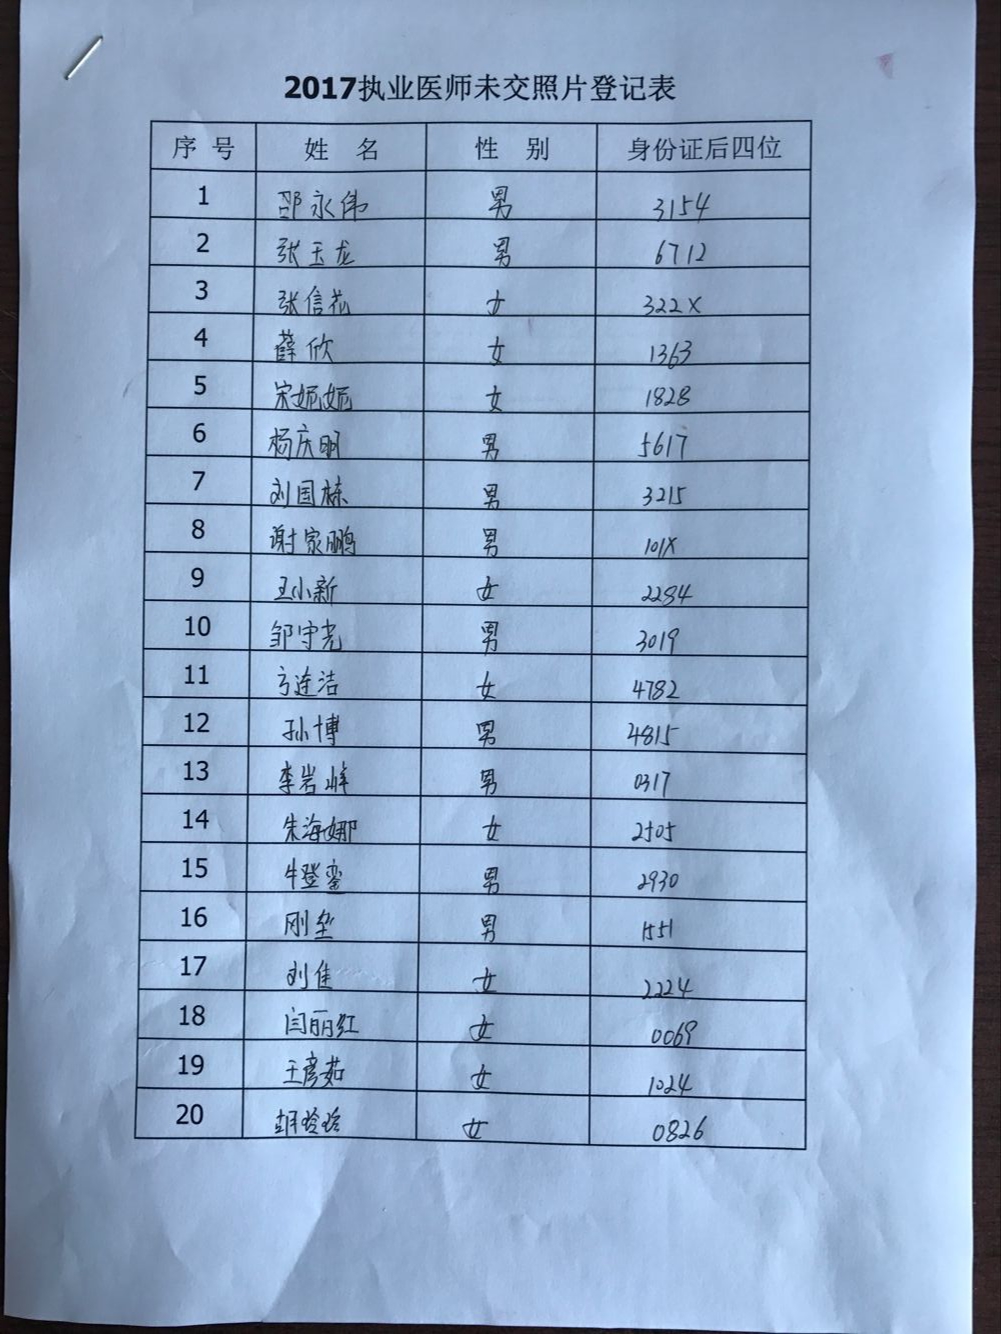 2017执业医师未交照片登记表
序 号 姓 名 性 别 身份证后四位
1 邵永伟 男 3154
2 张玉龙 男 6712
3 张信花 女 322X
4 薛欣 女 1363
5 宋妮妮 女 1828
6 杨庆明 男 5617
7 刘国栋 男 3215
8 谢家鹏 男 101X
9 王小新 女 2284
10 邹守尧 男 3019
11 亓连洁 女 4782
12 孙博 男 4815
13 李岩峰 男 0317
14 朱海娜 女 2505
15 牛登銮 男 2930
16 男 1551
17 刘佳 女 2224
18 闫丽红 女 0069
19 王彦茹 女 1024
20 胡玲玲 女 0826